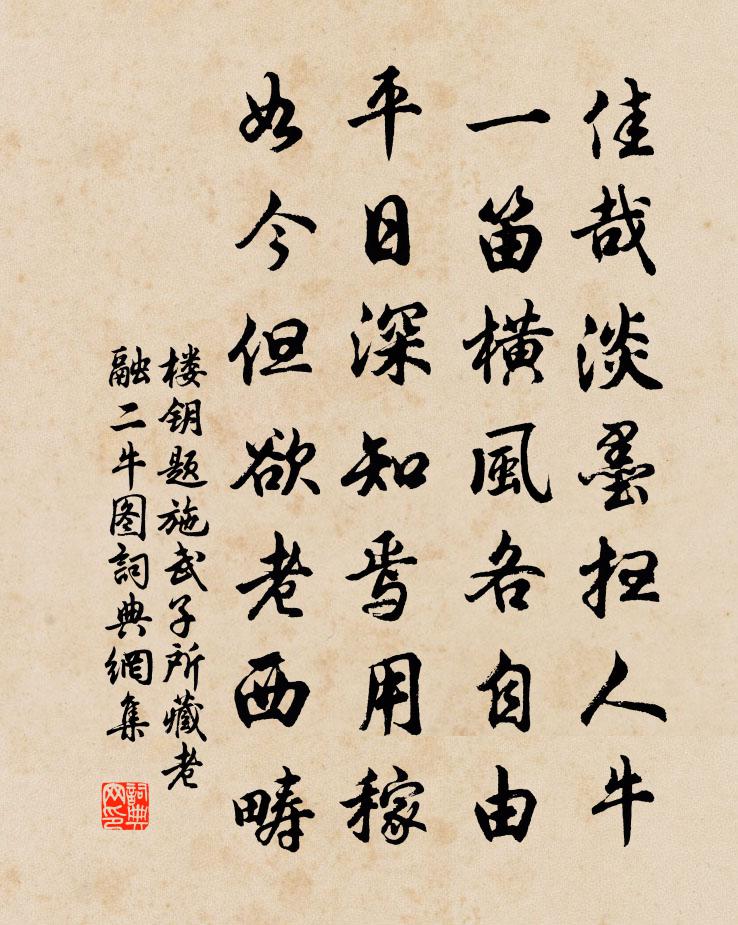 佳哉淡墨扫人牛
一笛横風各自由
平日深知焉用稼
如今但欲老西畴
楼钥题施武子所藏老
融二牛图詞典網集
詞典
网印